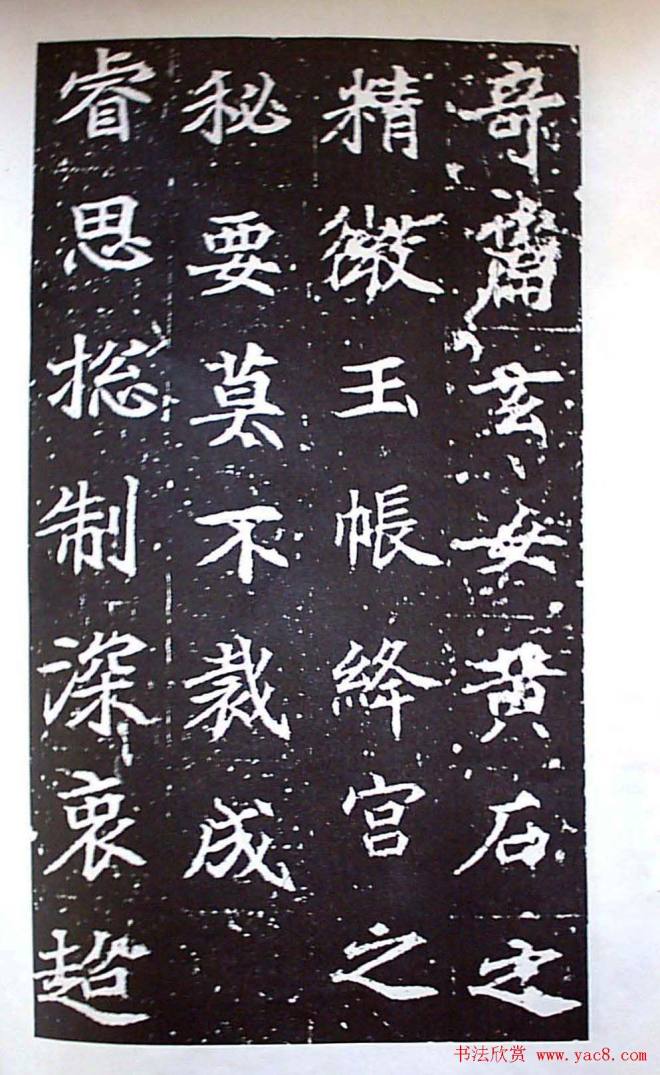 奇玄女黄石之
精微玉帳絳宫之
秘要莫不裁成
睿思捴制深衷超
书法欣赏 www.yac8.com